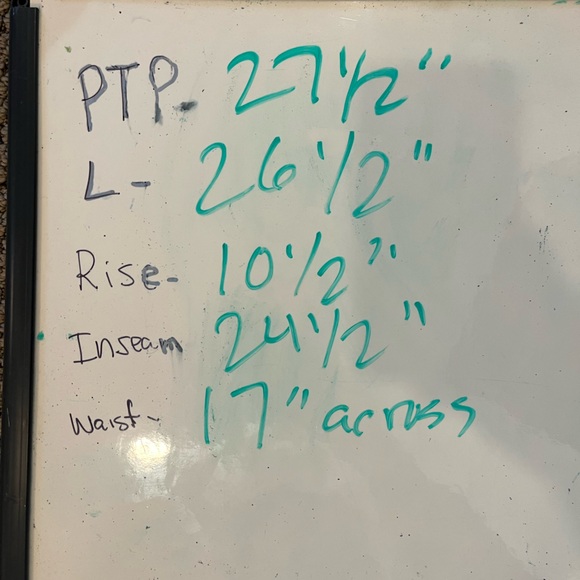 PTP- 27 1/2"
L- 26 1/2"
Rise- 10 1/2"
Inseam 24 1/2"
Waist- 17" across